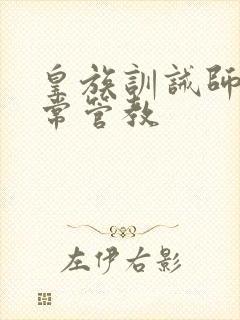 皇族訓誡師
常管教
左伊右影